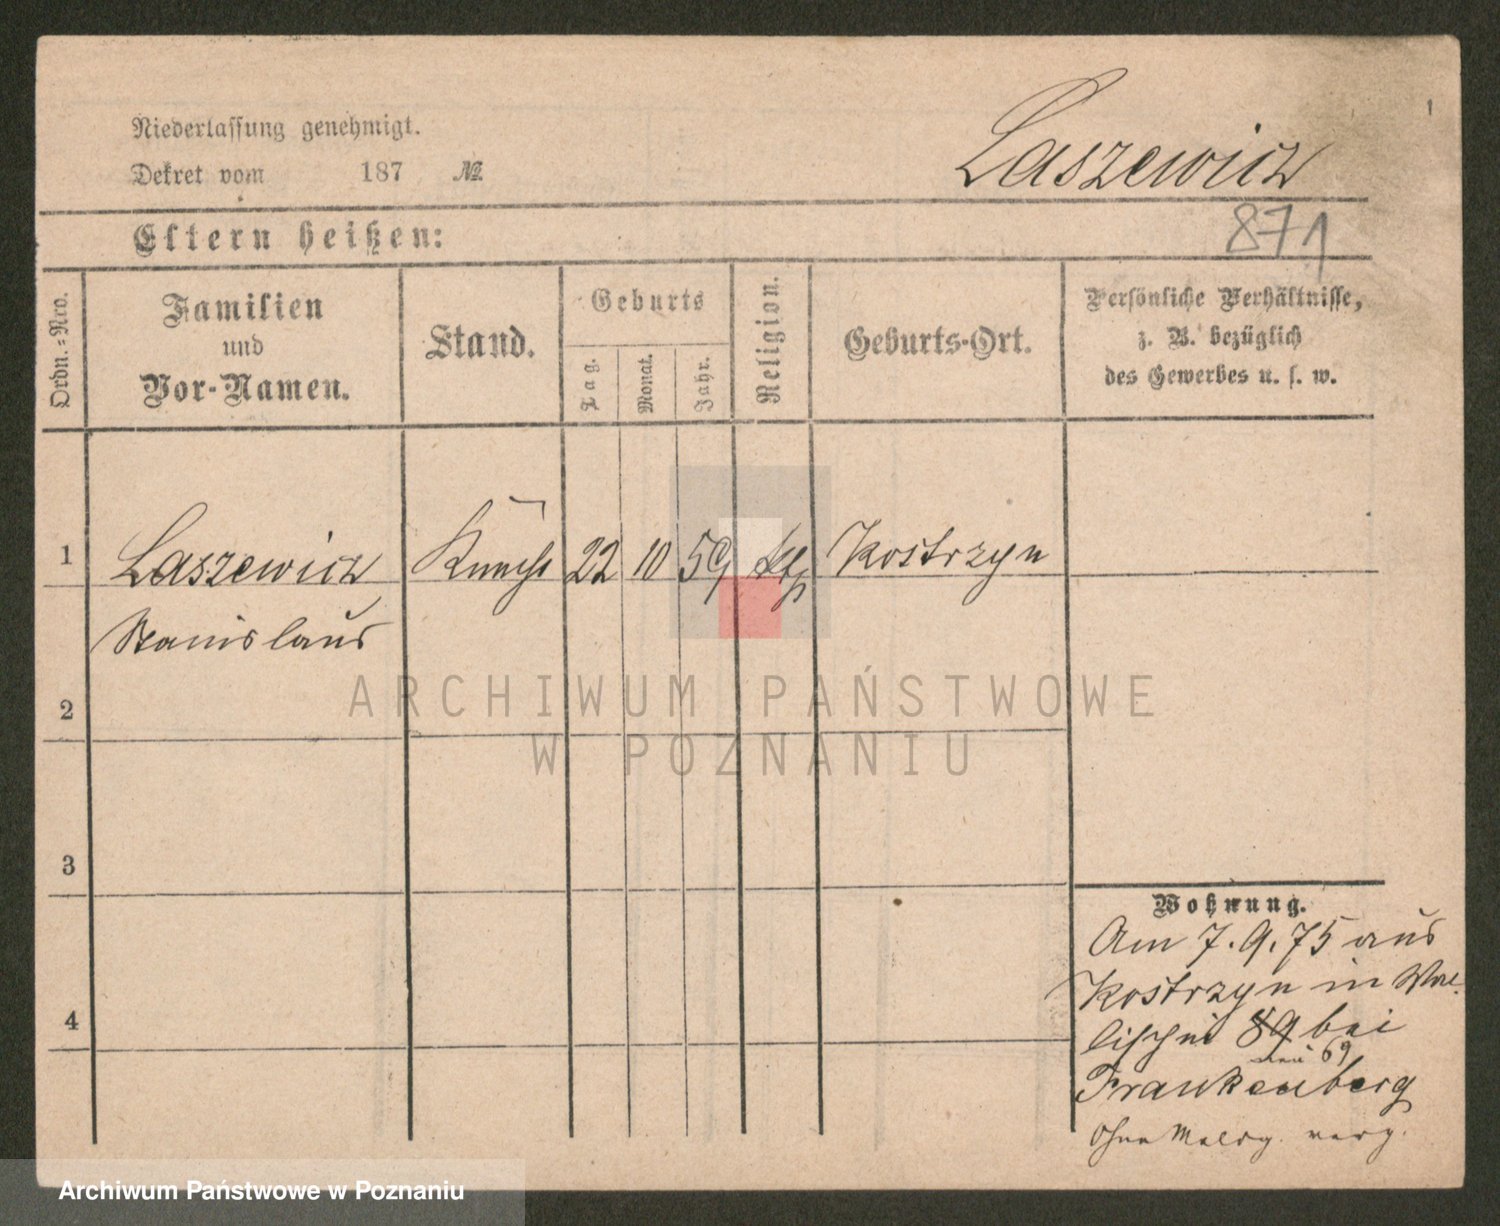 Niederlassung genehmigt.
Dekret vom 187 №
Laszewicz
871
Eltern heißen:
Ordn.=Nro.
Familien
und
Vor-Namen.
Stand.
Geburts
Tag.
Monat.
Jahr.
Religion.
Geburts-Ort.
Persönliche Verhältnisse,
z. B. bezüglich
des Gewerbes u. s. w.
1 Laszewicz 22 10 59 Kostrzyn
Stanislaus
2
3
4
Wohnung.
Am 7.9.75 aus
Kostrzyn in Wal-
lischei 89 bei
neu 69
Frankenberg
ohne Meldg. verz.
ARCHIWUM PAŃSTWOWE
W POZNANIU
Archiwum Państwowe w Poznaniu